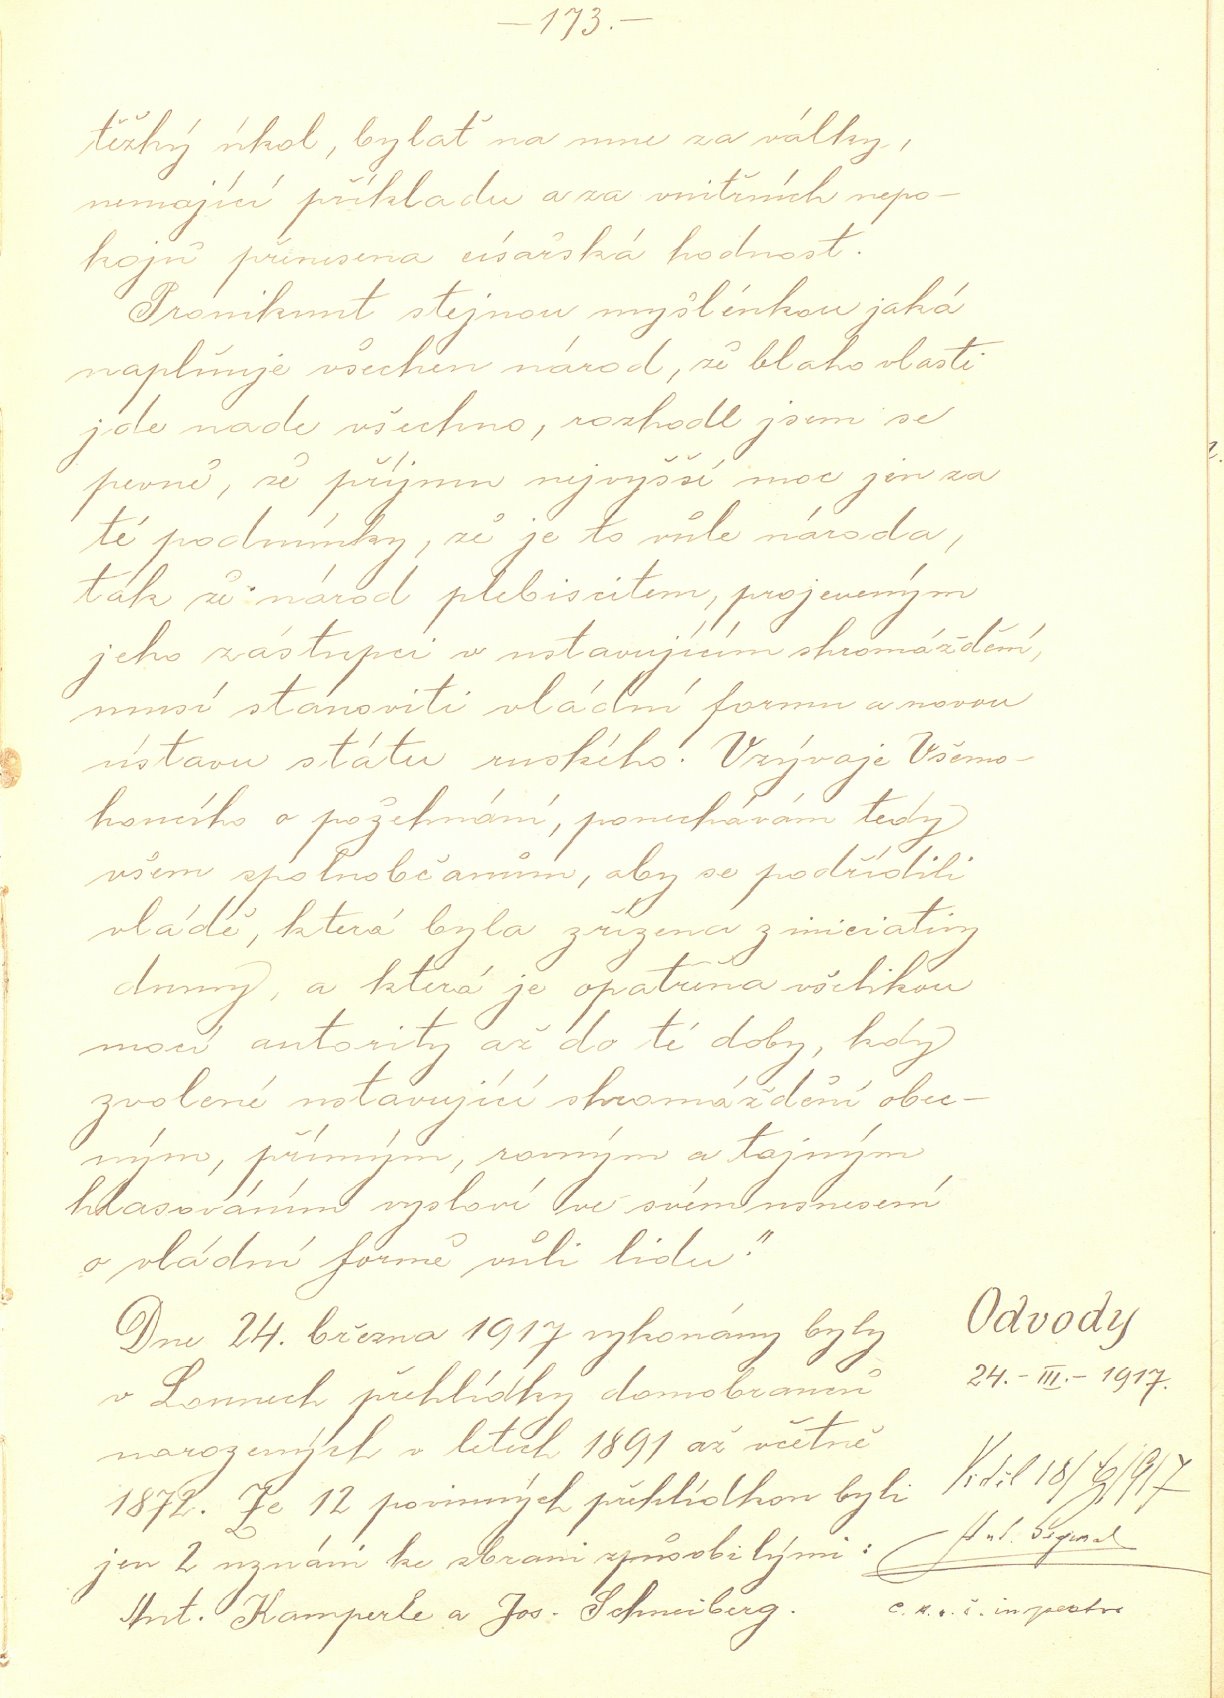 — 173. —
těžký úkol, bylať na mne za války,
nemající příkladu a za vnitřních nepo-
kojů přenesena císařská hodnost.
Proniknut stejnou myšlénkou jaká
naplňuje všechen národ, že blaho vlasti
jde nade všechno, rozhodl jsem se
pevně, že příjmu nejvyšší moc jen za
té podmínky, že je to vůle národa,
ták že národ plebiscitem, projeveným
jeho zástupci v ustavujícím shromáždění,
musí stanoviti vládní formu a novou
ústavu státu ruského. Vzývaje Všemo-
houcího o požehnání, ponechávám tedy
všem spoluobčanům, aby se podřídili
vládě, která byla zřízena z iniciativy
dumy, a která je opatřena všelikou
mocí autority až do té doby, kdy
zvolené ustavující shromáždění obec-
ným, přímým, rovným a tajným
hlasováním vysloví ve svém usnesení
o vládní formě vůli lidu."
Dne 24. března 1917 vykonány byly
v Lounech přehlídky domobranců
narozených v letech 1891 až včetně
1872. Ze 12 povinných přehlídkou byli
jen 2 uznáni ke zbrani způsobilými:
Ant. Kamperle a Jos. Schneiberg.
Odvody
24. - III. - 1917.
Viděl 18/
Ant.
inspektor